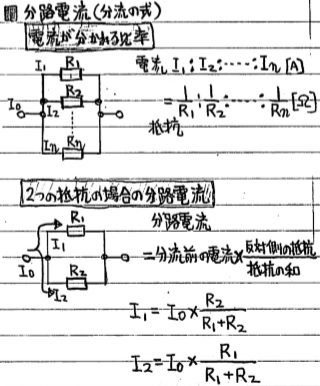 分路電流(分流の式)
電流が分かれる比率
I₁ R₁
I₀ I₂ R₂
Iₙ Rₙ
電流 I₁:I₂:……:Iₙ[A]
=1/R₁:1/R₂:……:1/Rₙ[Ω]
抵抗
2つの抵抗の場合の分路電流
I₁ R₁
I₀ R₂
I₂
分路電流
=分流前の電流×反対側の抵抗/抵抗の和
I₁=I₀×R₂/R₁+R₂
I₂=I₀×R₁/R₁+R₂